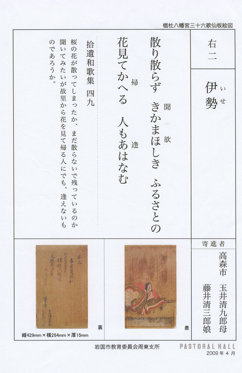 楢社八幡宮三十六歌仙板絵図
右 二
伊勢
いせ
散り散らず きかまほしき ふるさとの
聞 欲
花見てかへる 人もあはなむ
帰 逢
拾遺和歌集 四九
桜の花が散ってしまったか、まだ散らないで残っているのか
聞いてみたいが故里から花を見て帰る人にでも、逢えないも
のであろうか。
寄進者
高森市 玉井清九郎母
藤井清三郎娘
表
裏
縦429mm×横264mm×厚15mm
岩国市教育委員会周東支所
PASTORAL HALL
2009年4月